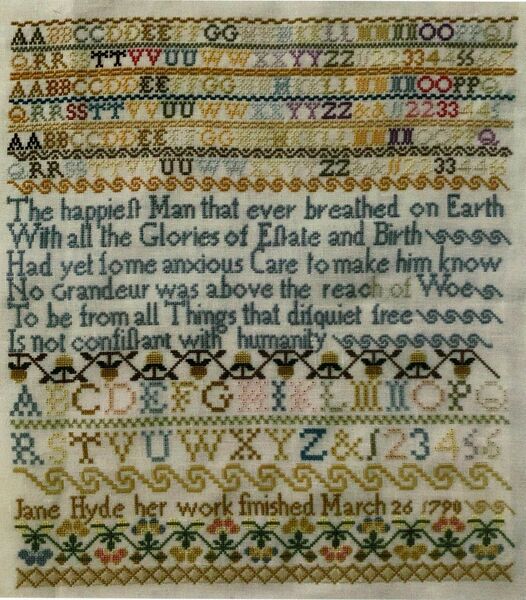 AABBCCDDEEFFGGHHIIKKLLMMNNOOPPQ
QRRSSTTVVUUWWXXYYZZ&&112233445566
AABBCCDDEEFFGGHHIIKKLLMMNNOOPPQ
QRRSSTTVVUUWWXXYYZZ&&112233445
AABBCCDDEEFFGGHHIIKKLLMMNNOOPPQ
QRRSSTTVVUUWWXXYYZZ&&11223344
The happieſt Man that ever breathed on Earth
With all the Glories of Eſtate and Birth
Had yet ſome anxious Care to make him know
No Grandeur was above the reach of Woe
To be from all Things that diſquiet free
Is not conſiſtant with humanity
ABCDEFGHIKLMNOPQ
RSTVUWXYZ&123456
Jane Hyde her work finished March 26 1790